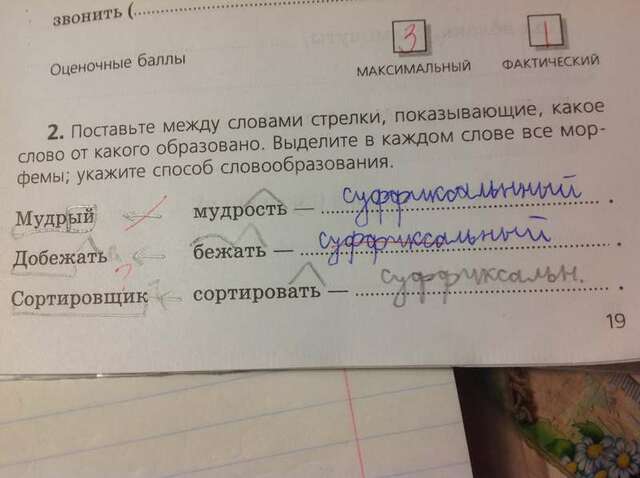 звонить (
Оценочные баллы 3 1
МАКСИМАЛЬНЫЙ ФАКТИЧЕСКИЙ
2. Поставьте между словами стрелки, показывающие, какое
слово от какого образовано. Выделите в каждом слове все мор-
фемы; укажите способ словообразования.
Мудрый ← мудрость — суффиксальнный.
Добежать ← бежать — суффиксальный.
Сортировщик ← сортировать — суффиксальн.
19